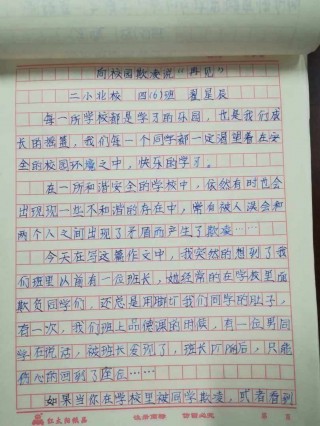 向校园欺凌说“再见”
二小北校 四(6)班 翟星辰
每一所学校都是学习的乐园，也是我们成
长的摇篮，我们每一个同学都一定渴望着在安
全的校园环境之中，快乐的学习。
在一所和谐安全的学校中，依然有时也会
出现现一些不和谐的存在中，常有被人误会和
两个人之间出现了矛盾而产生了欺凌……
今天在写这篇作文中，我突然的想到了我
们班里以前有一位班长，她经常的在学校里面
欺负同学们，还总是用脚 我们同学的肚子，
有一次，我们班上品德课的时候，有一位男同
学在说话，被班长发现了，班长 后，只能
伤心的回到了座位……
如果当你在学校里被同学欺凌，或者看到